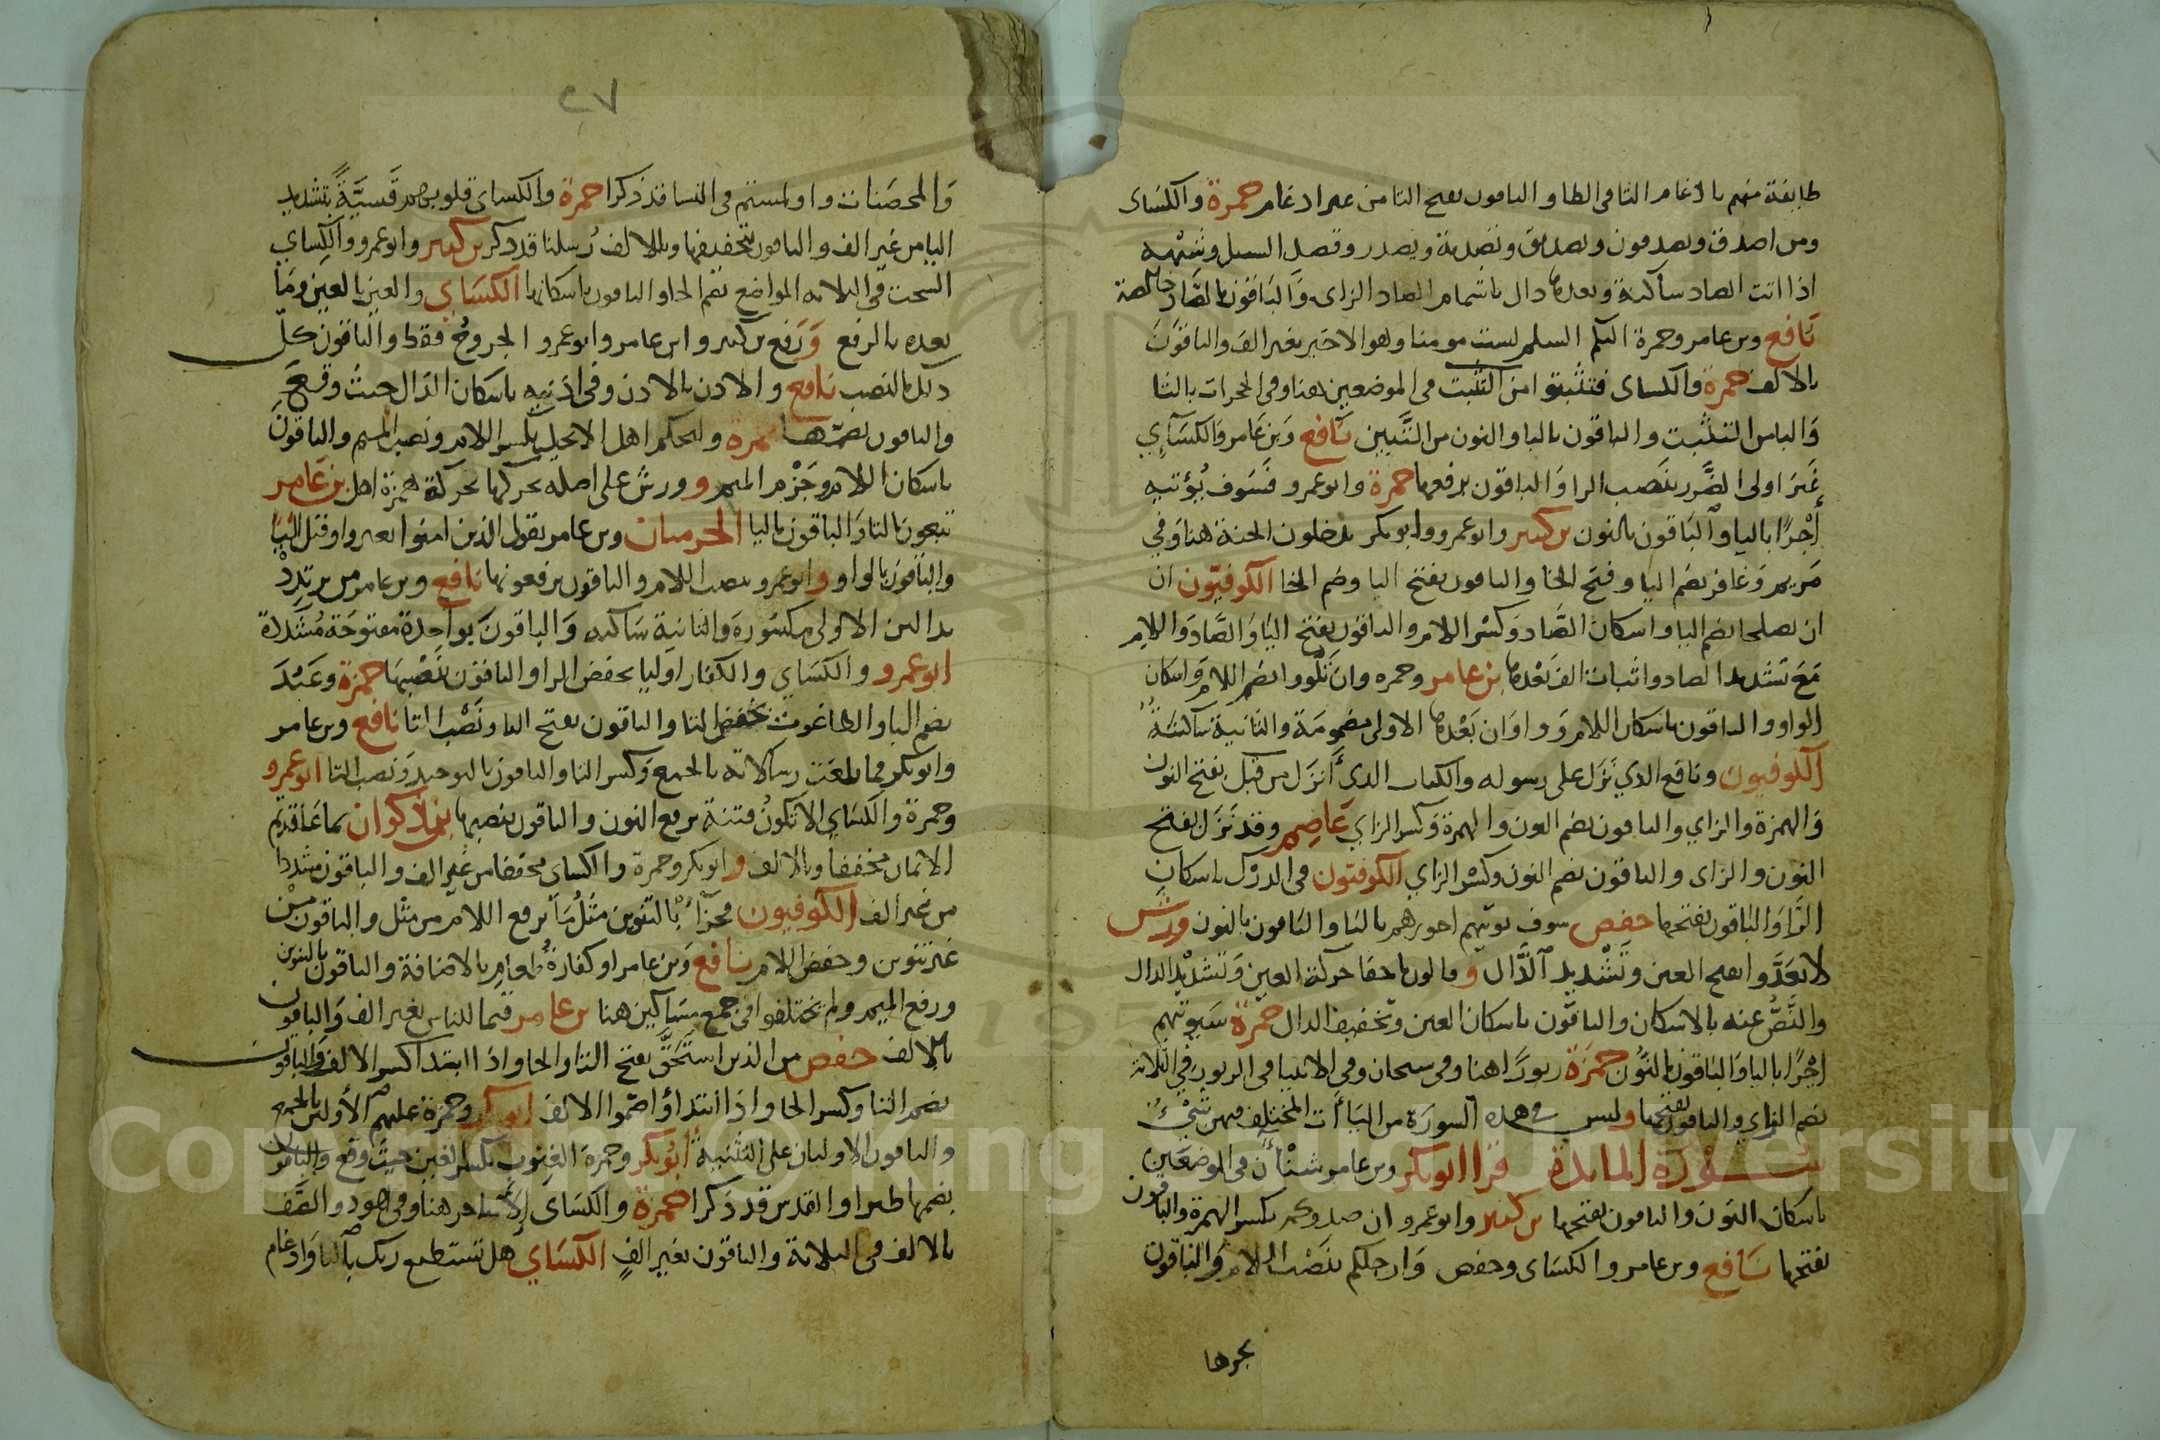 طايفة منهم بادغام التا في الطا والباقون بفتح التا من غير ادغام حمزة والكسَاى
ومن اصدق ويصدفون وتصديق وتصدية ويصدر وقصد السبيل وشبْهه
اذا اتت الصاد ساكنة وبعدها دال باشمام الصاد الزاى وَالبَاقون بالصَّاد خالصة
نَافع وبن عامر وحمزة اليكم السلم لست مومنا وهو الاخير بغير الف والباقونَ
بالالف حمزة والكساى فتثبتوا من التثبت في الموضعين هنا وفي الحجرات بالثا
وَالتا من التثبت والباقون باليا والنون من التَّبيين نَافع وَبن عَامر والكسَاي
غَيرَ اولى الضَّرر بنَصب الرا وَالباقون برفعها حمزة وابو عمرو فسَوف يُؤتيه
أَجْرًا باليا وَالبَاقون بالنون بن كثير وابو عمرو وابو بكر يدخلون الجنة هنا وَفي
مَريم وَغافر بضم اليا وفتح الخا والباقون بفتح اليا وضم الخا الكوفيّون ان
ان يصلحا بضم اليا واسكان الصَّاد وَكسْر اللام والباقون بفتح اليَا وَالصَّاد وَاللام
مَعَ تشديد الصاد واثبات الف بَعْدها بن عامر وحمزه وان تَلُووا بضم اللام وَاسكان
الواو والباقون باسكان اللام وَواوَان بَعْدها الاولى مضمومَة والثانية سَاكنَةٌ
الكوفيون ونافع الذي نَزَّل على رسوله والكتاب الذي أَنزل من قبل بفتح النون
وَالهمزة والزاي والباقون بضم النون والهمزة وَكسر الزاي عَاصِم وقد نَزَّل بفتح
النّون والزاى والباقون بضم النون وكسْر الزاي الكوفيون في الدرْك باسكان
الرَّا وَالبَاقون بفتحها حفص سوف يؤتيهم اجورهم باليا والبَاقون بالنون ورش
لا تعَدَّوا بفتح العين وتَشْديد الدَّال و قالون باخفا حركة العين وَتشديْد الدال
والنَّصُّ عنه بالاسكان والباقون باسكان العين وتخفيف الدال حمزة سَيوتيهم
اجْرًا باليا وَالباقون بالنُّون حمزة زبورًا هنا وفي سبحان وفي الانبيا في الزبور في الثلاثة
بضم الزاي والباقون بفتحها وليس في هذه السورَة من اليَاأَت المختلف فيهن شَيْءٌ
سُورَة المائدة قرا ابو بكر وبن عامر شنْأَن في الموضعَين
باسكان النون والباقون بفتحها بن كثير وابو عمرو ان صدوكم بكسر الهمزة والباقون
بفتحها نَافع وبن عامر والكسَاى وحفص وَارجلكم بنَصْب اللام وَالباقون
بجرها
٢٧
وَالمحصَنات واولمستم في النسا قد ذكرا حمزة والكساى قلوبهم قَسيَّةً بتشديد
اليا من غير الف والباقون بتخفيفها وبالالف رُسلنا قد ذكر بن كثير وابو عمرو والكِسَاي
السحت في الثلاثه المواضع بضم الحا والباقون باسكانها الكسَاي والعين بالعَين وَمَا
بعده بالرفع وَرَفع بن كثير وابن عامر وابو عمرو الجروحُ فقط والباقون كلّ
ذلك بالنصب نافع والاذن بالاذن وفي اذنيه باسكان الذال حيثُ وقعَ
والباقون بضمّها حمزة وليحكم اهل الانجيل بكسر اللام ونصب الميم والباقون
باسكان اللام وَجَزْم الميم و ورش على اصله بحركها بحركة همزة اهل بن عَامر
تبغون بالتا وَالباقون باليا الحرميان وبن عامر يقول الذين امنوا بغير واو قبل اليَا
والباقون بالواو و ابو عمرو بنصب اللام والباقون برفعونها نافع وبن عامر من يرتدِدْ
بدالين الاولى مكسُورَة والثانية سَاكنه وَالباقونَ بواحِدة مفتوحَة مُشَدَّدة
ابو عمرو والكسَاي والكفار اوليا بخفض الرا والباقون بنَصْبهَا حمزة وعَبُدَ
بضم البا والطاغوت بخفض التا والباقون بفتح البا ونَصْب التا نافع وبن عامر
وابو بكر فما بلغت رسالاته بالجمع وَكسر التا والباقون بالتوحيد وَنصب التا ابو عمرو
وحمزة والكسَاي الا تكونُ فتنة برفع النون والباقون بنصبها بن ذكوان بما عَاقدتم
الايمان مخففا وبالالف و ابو بكر وحمزة والكساى مخففا من غير الف والباقون مشددا
من غير الف الكوفيون فجزآءٌ بالتنوين مثْلُ مَا برفع اللام من مثْل والباقون منْ
غير تنوين وخفض اللام نافع وَبن عامر او كفارةُ طعامِ بالاضافة والباقون بالتنوين
ورفع الميم ولم يختلفوا في جمع مسَاكين هنا بن عامر قيما للناس بغير الف وَالباقون
بالالف حفص من الذين استَحَقَّ بفتح التا والحا واذا ابتدا كسر الالف وَالباقون
بضم التا وكسر الحا واذا ابتداؤا ضمّوا الالف ابو بكر وحمزة عليهم الأَولين بالجمع
والباقون الاوليان على التثنية ابُو بَكر وحمزة الغِيُوب بكسر الغين حيثُ وقع والباقون
بضمها طيرا والقدس قد ذَكرا حمزة والكسَاى الاّ ساحر هنا وفي هود والصَّف
بالالف في الثلاثة والباقون بغير الفٍ الكسَاي هل تستطيع ربك بالتا وَادغام